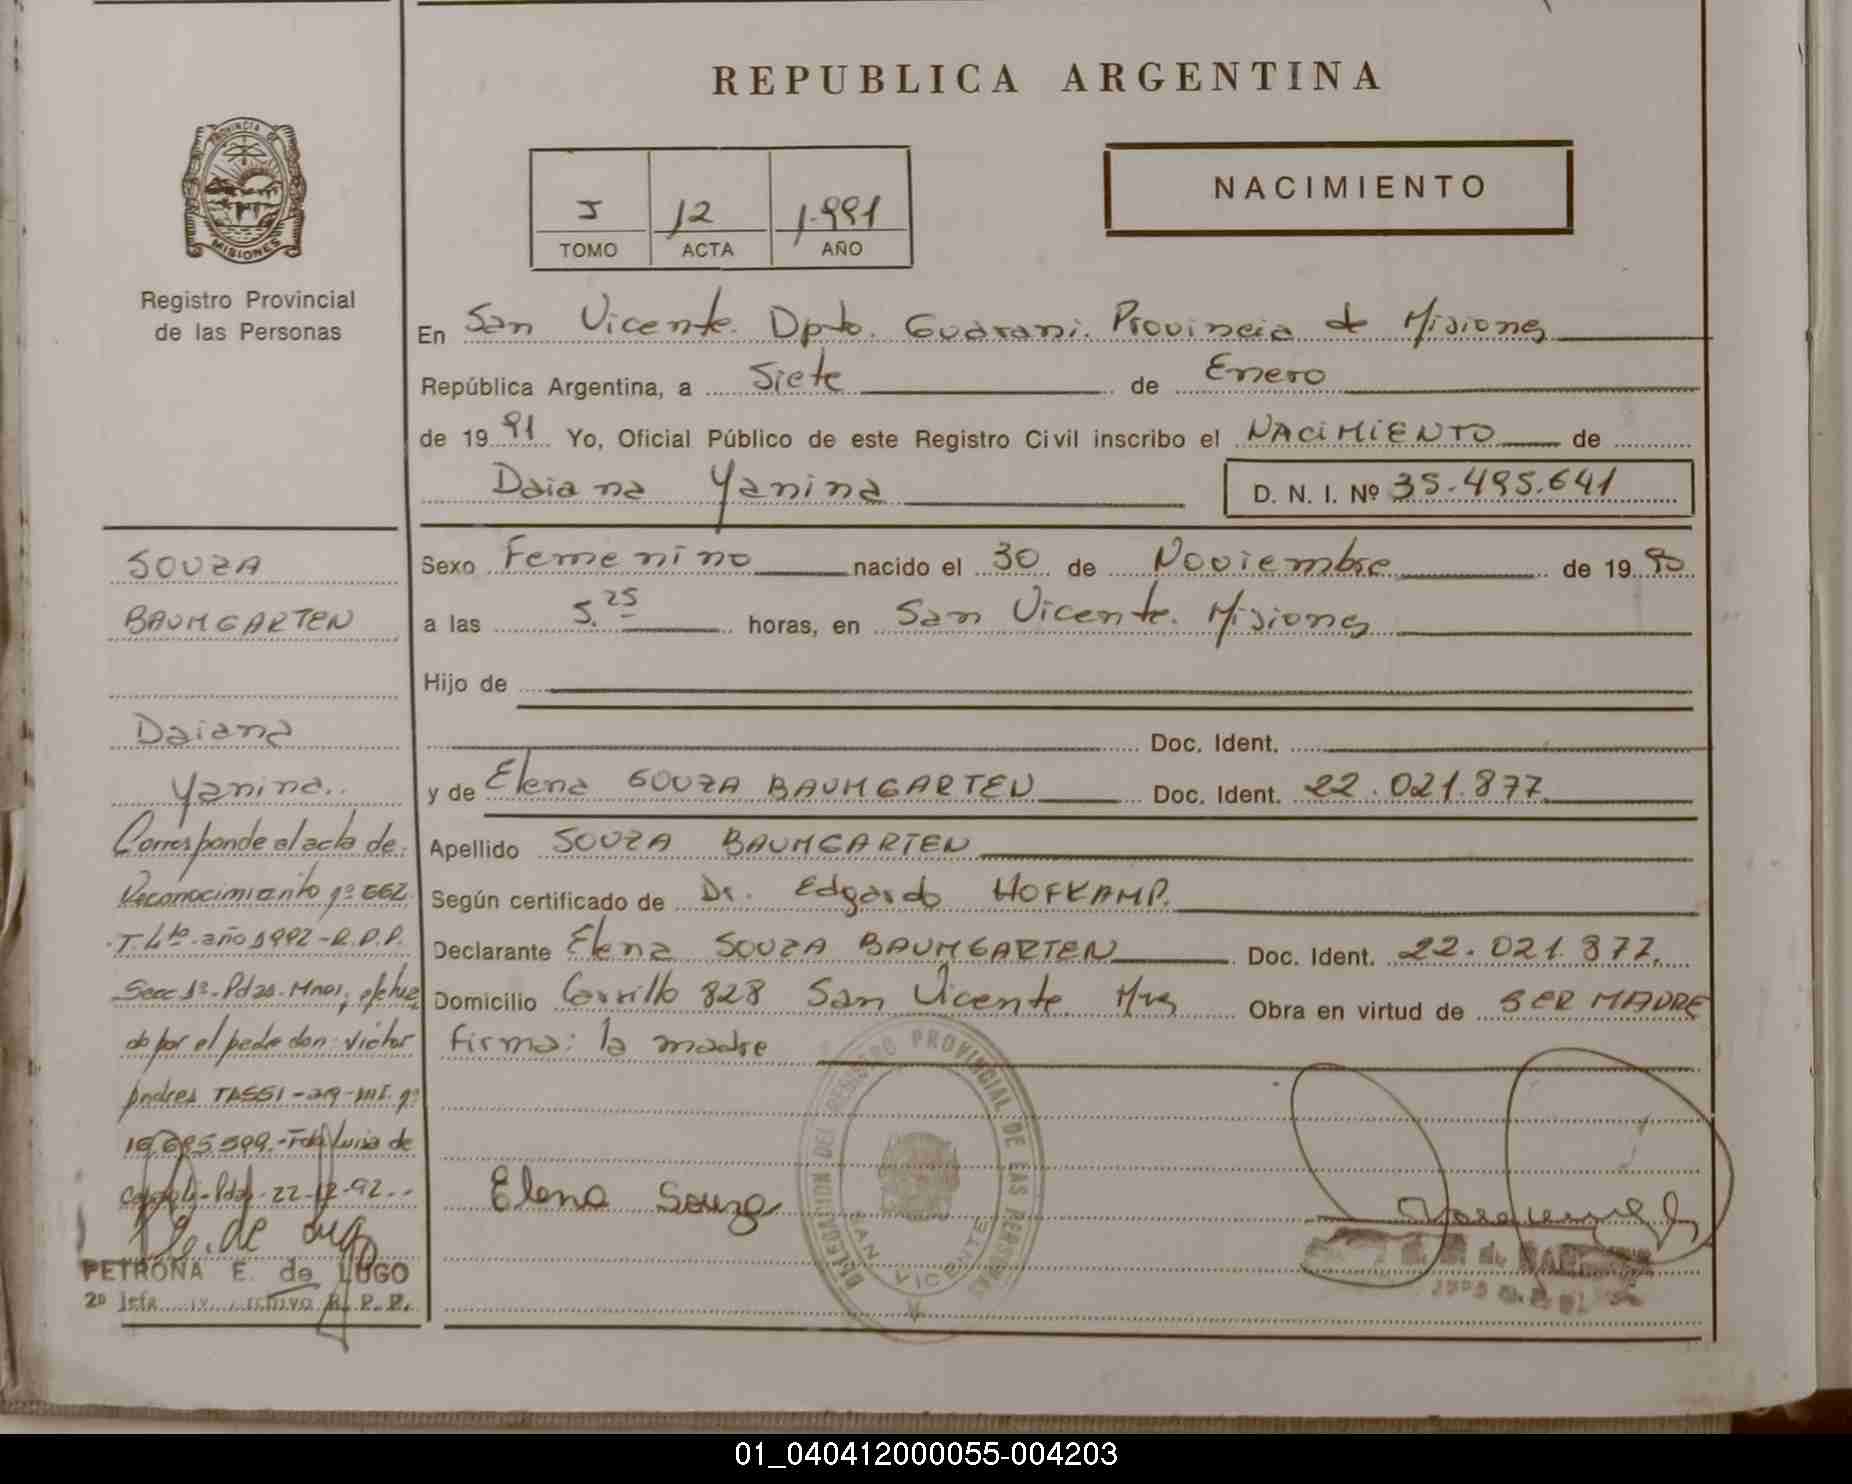 REPUBLICA ARGENTINA
PROVINCIA DE
MISIONES
Registro Provincial
de las Personas
I 12 1.991
TOMO ACTA AÑO
NACIMIENTO
En San Vicente. Dpto. Guarani. Provincia de Misiones
República Argentina, a Siete de Enero
de 19 91 Yo, Oficial Público de este Registro Civil inscribo el NACIMIENTO de
Daiana Yanina D. N. I. Nº 35.495.641
Sexo Femenino nacido el 30 de Noviembre de 19 90
a las 5.25 horas, en San Vicente. Misiones
Hijo de
Doc. Ident.
y de Elena SOUZA BAUMGARTEN Doc. Ident. 22.021.877
Apellido SOUZA BAUMGARTEN
Según certificado de Dr. Edgardo HOFKAMP.
Declarante Elena SOUZA BAUMGARTEN Doc. Ident. 22.021.877.
Domicilio Carrillo 828 San Vicente Mns Obra en virtud de SER MADRE
firma: la madre
Elena Souza
DELEGACION DEL REGISTRO PROVINCIAL DE LAS PERSONAS
SAN VICENTE
SOUZA
BAUMGARTEN
Daiana
Yanina..
Corresponde el acta de
Reconocimiento nº 662
T. 4to año 1992 - R.P.P.
Secc 1ª - Pdas. Mnes, efectua
do por el padre don: Victor
Andres TASSI - arg - M.I. nº
16.695.599.- Fdo Luisa de
Pdas. 22-12-92..
PETRONA E. de LUGO
2º Jefa Archivo R. P. P.
01_040412000055-004203